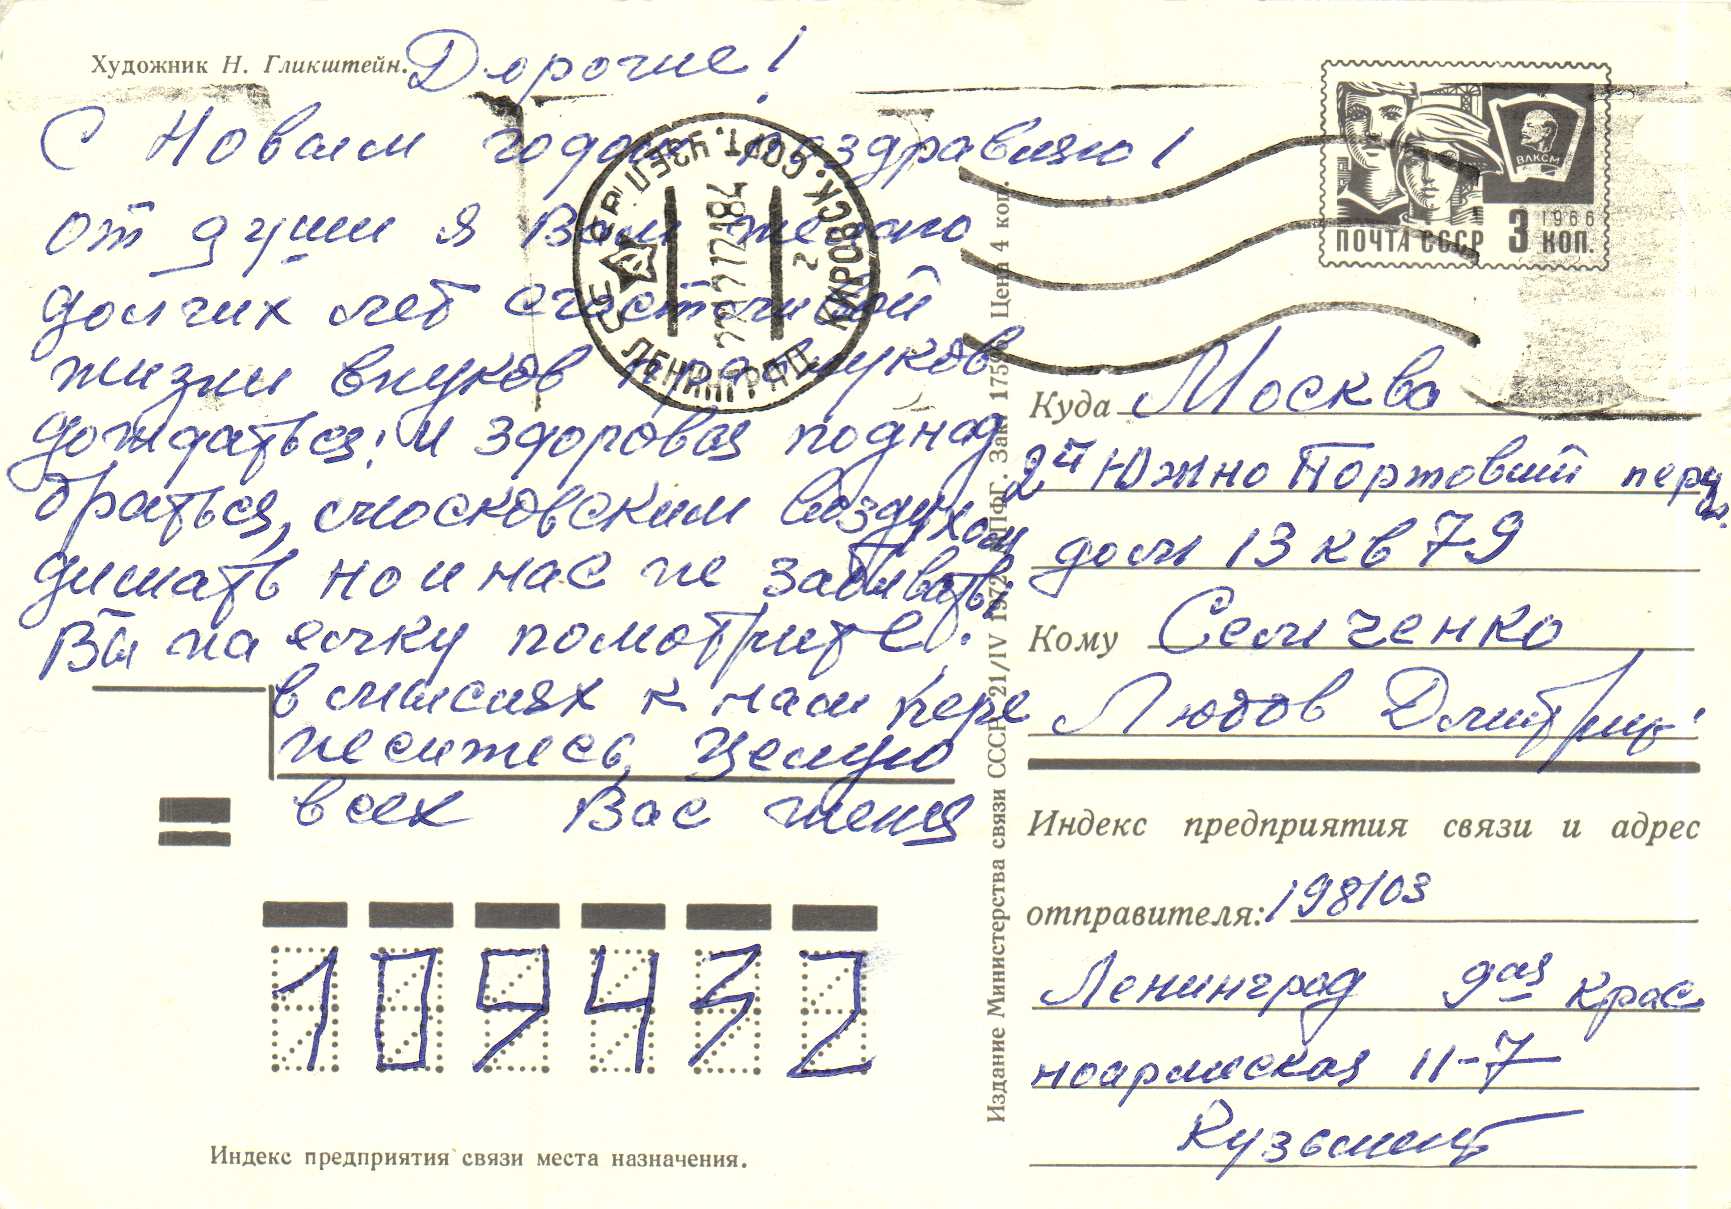 Художник Н. Гликштейн.
Дорогие!
С Новым годом поздравляю!
от души я Вам желаю
долгих лет счастливой
жизни внуков правнуков
дождаться! и здоровья поднаб
браться, московским воздухом
дышать но и нас не забывать,
Вы на ёлку помотрите.
в мыслях к нам пере
неситесь, Целую
всех Вас тётя
109432
Индекс предприятия связи места назначения.
Издание Министерства связи СССР. 21/IV 1972 г. ППФГ. Зак. Цена 4 коп.
ПОЧТА СССР 3 КОП.
1966
ВЛКСМ
ЛЕНИНГРАД КИРОВСК. СОРТ. УЗЕЛ
Куда Москва
2й Южно Портовый пер
дом 13 кв 79
Кому Семченко
Любов Дмитриев
Индекс предприятия связи и адрес
отправителя: 198103
Ленинград 9ая Крас
ноармеская 11-7
Кузьмент